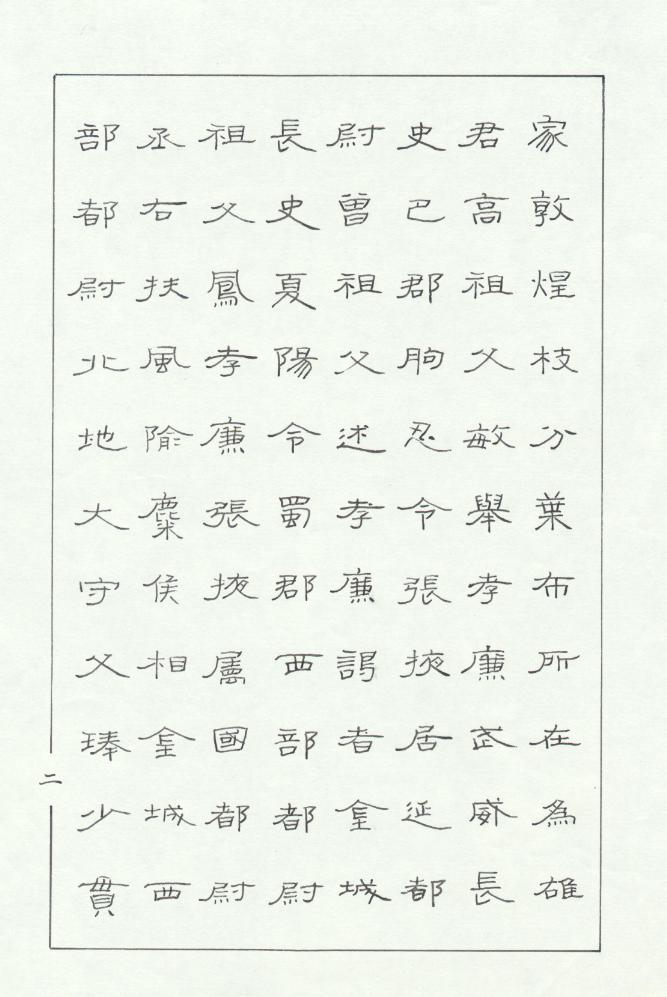 家敦煌枝分葉布所在為雄
君高祖父敏舉孝廉武威長
史巴郡朐忍令張掖居延都
尉曾祖父述孝廉謁者金城
長史夏陽令蜀郡西部都尉
祖父鳳孝廉張掖屬國都尉
丞右扶風隃麋侯相金城西
部都尉北地大守父琫少貫
二